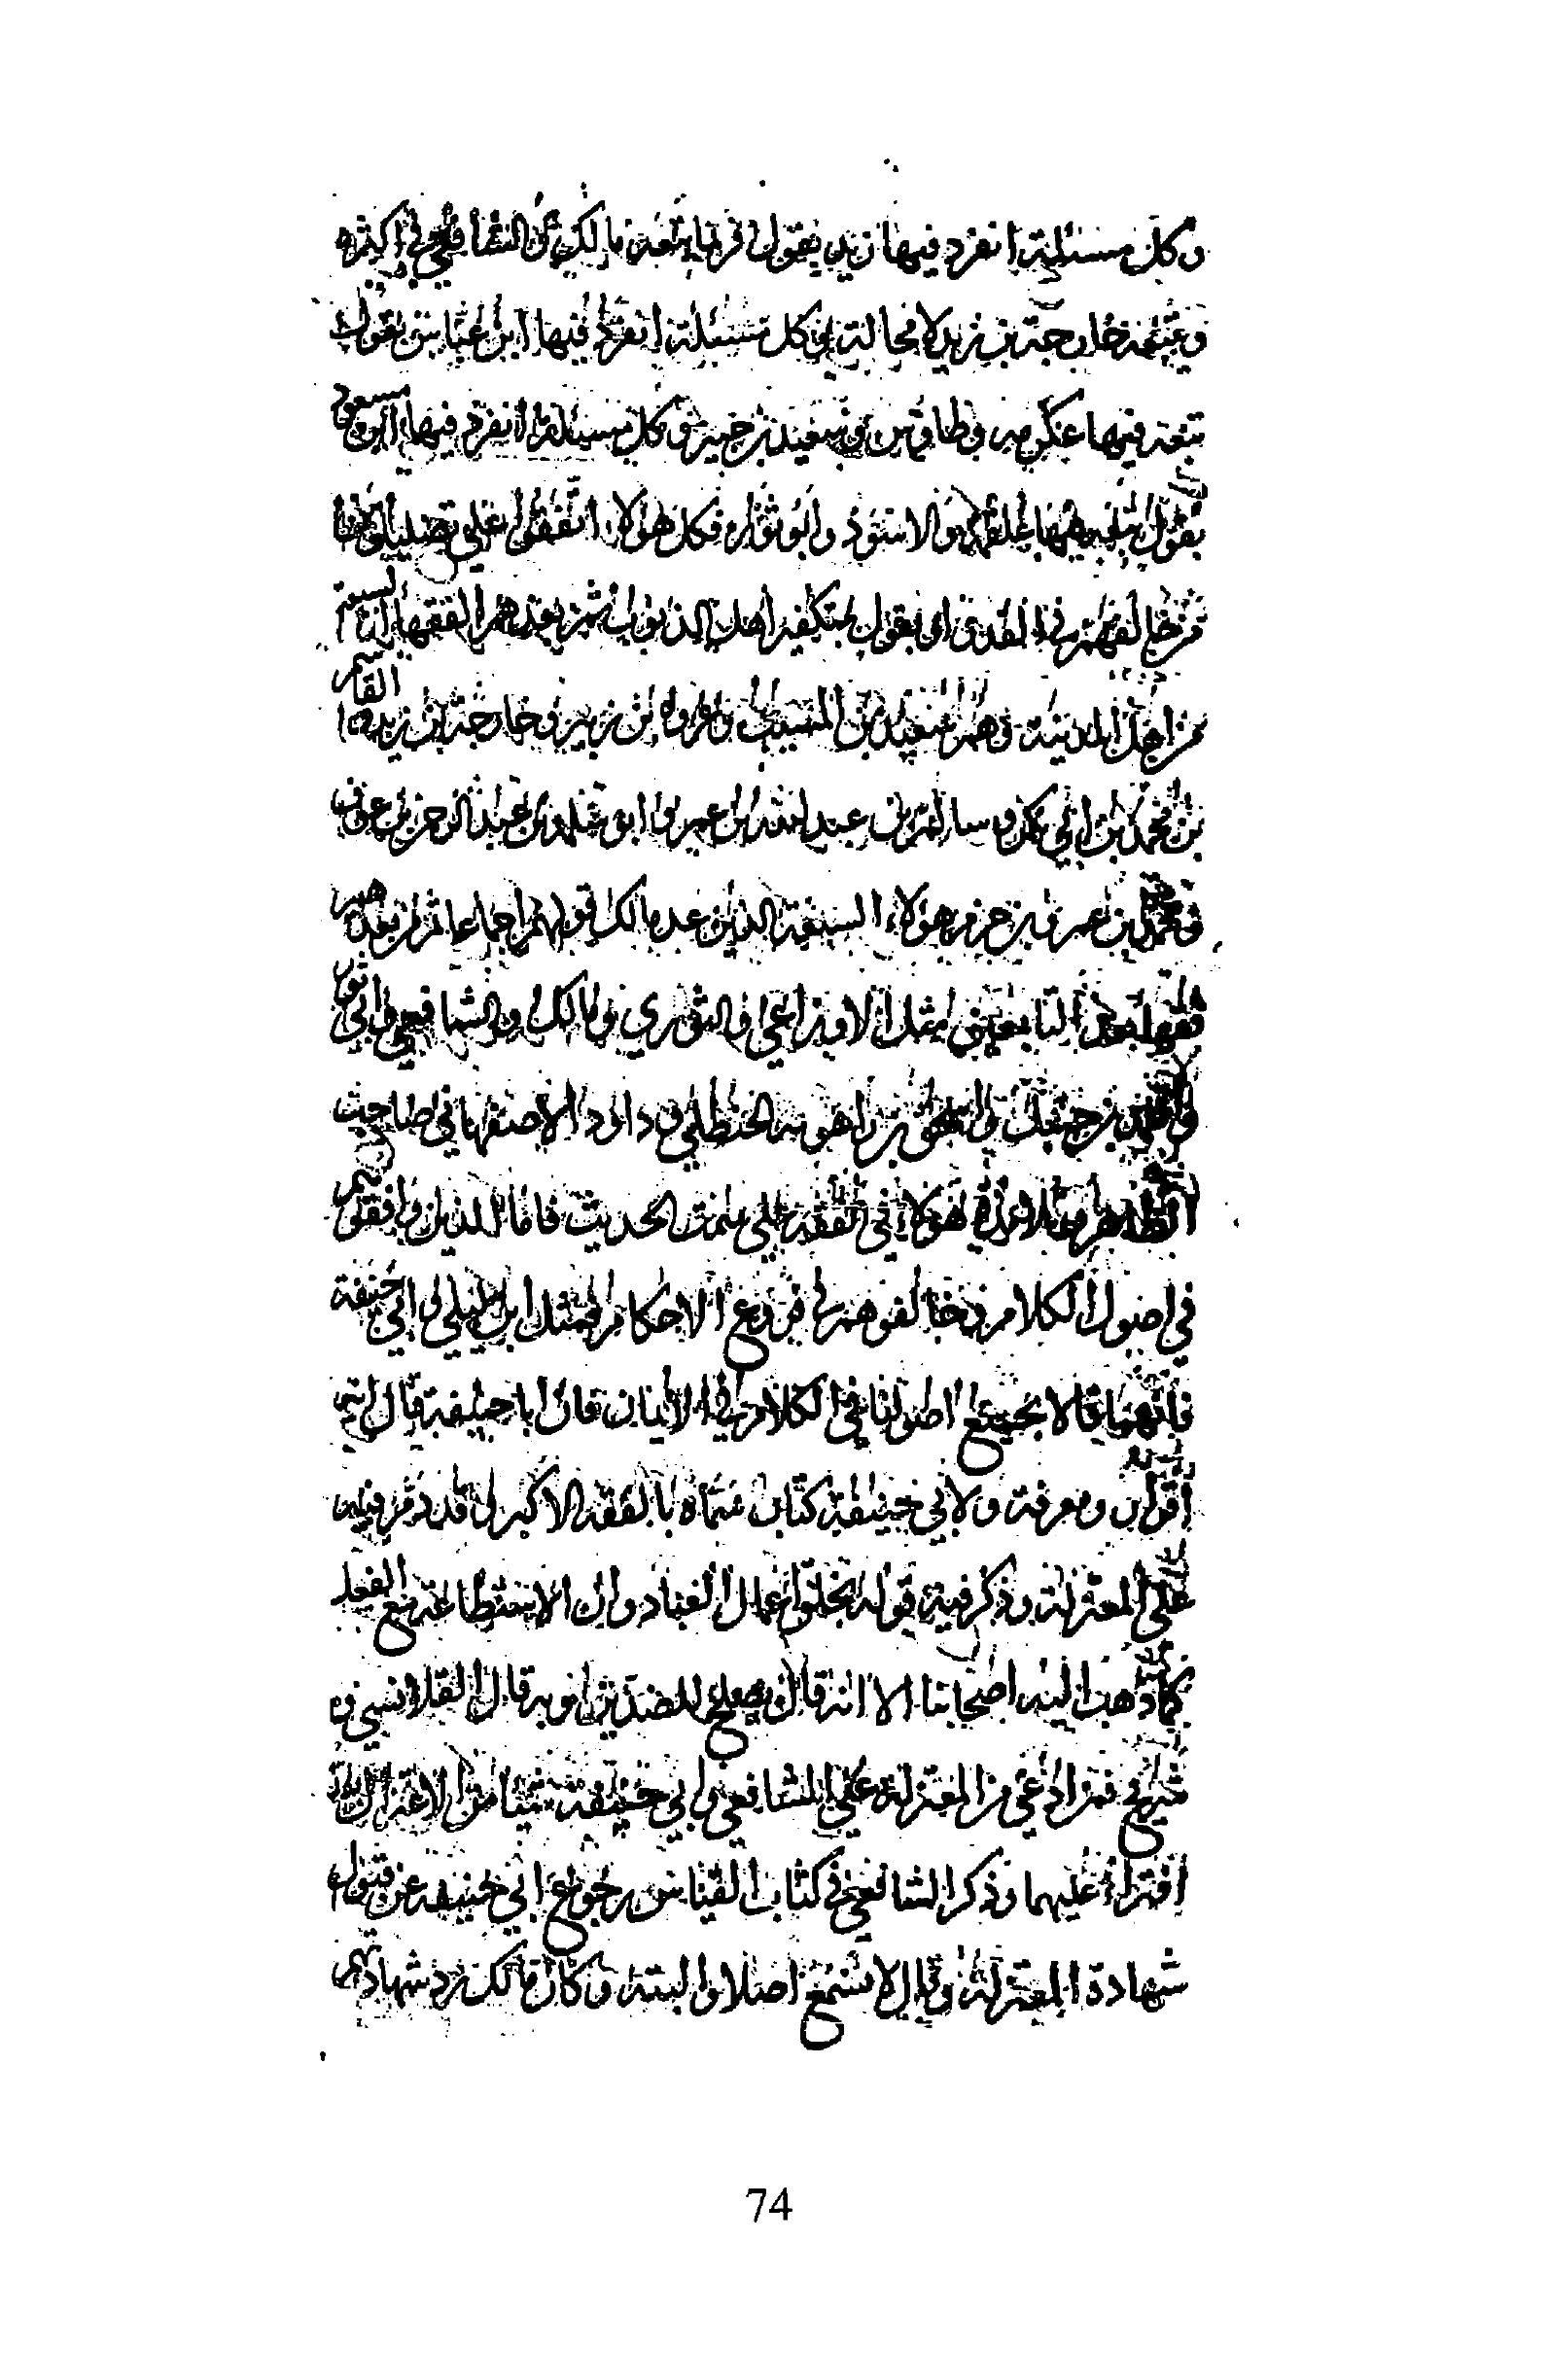 وكل مسئلة انفرد فيها زيد بقول فربما يتبعه مالك والشافعي في اكثره
ويتبعه خارجة بن زيد لا محالة وكل مسئلة انفرد فيها ابن عباس بقول
يتبعه فيها عكرمه وطاوس وسعيد بن جبير وكل مسئلة انفرد فيها ابن مسعود
بقول يتبعه فيها علقمة والاسود وابو ثور فكل هؤلاء اتفقوا على تضليل
من خالفهم في القدر او يقول بتكفير اهل الذنوب ثم بعدهم الفقهاء السبعة
من اهل المدينة وهم سعيد بن المسيب وعروه بن زبير وخارجة بن زيد والقاسم
بن محمد بن ابي بكر وسالم بن عبد الله بن عمر وابو سلمه بن عبد الرحمن بن عوف
ومحمد بن عمرو بن حزم هؤلاء السبعة الذين عد مالك قولهم اجماعا ثم من بعدهم
فقهاء التابعين مثل الاوزاعي والثوري ومالك والشافعي وابي ثور
واحمد بن حنبل واسحق بن راهويه الحنظلي وداود الاصفهاني صاحب
الظاهر وتلامذة هؤلاء في الفقه على سمت الحديث فاما الذين وافقوهم
في اصول الكلام وخالفوهم في فروع الاحكام فمثل ابن ابي ليلى وابي حنيفة
فانهما قالا بجميع اصولنا في الكلام في الايمان فان ابا حنيفة قال انه
اقرار ومعرفة ولابي حنيفة كتاب سماه بالفقه الاكبر قد رد فيه
على المعتزلة وذكر فيه قوله بخلق اعمال العباد وان الاستطاعة مع الفعل
كما ذهب اليه اصحابنا الا انه قال يصلح للضدين وبه قال القلانسي وبن
شريح فمن ادعى من المعتزلة على الشافعي وابي حنيفة شيئا من الاعتزال فقد
افترا عليهما وذكر الشافعي في كتاب القياس رجوع ابي حنيفه عن قبول
شهادة المعتزلة وقال لا يسمع اصلا والبتة وكان مالك يرد شهادتهم
74